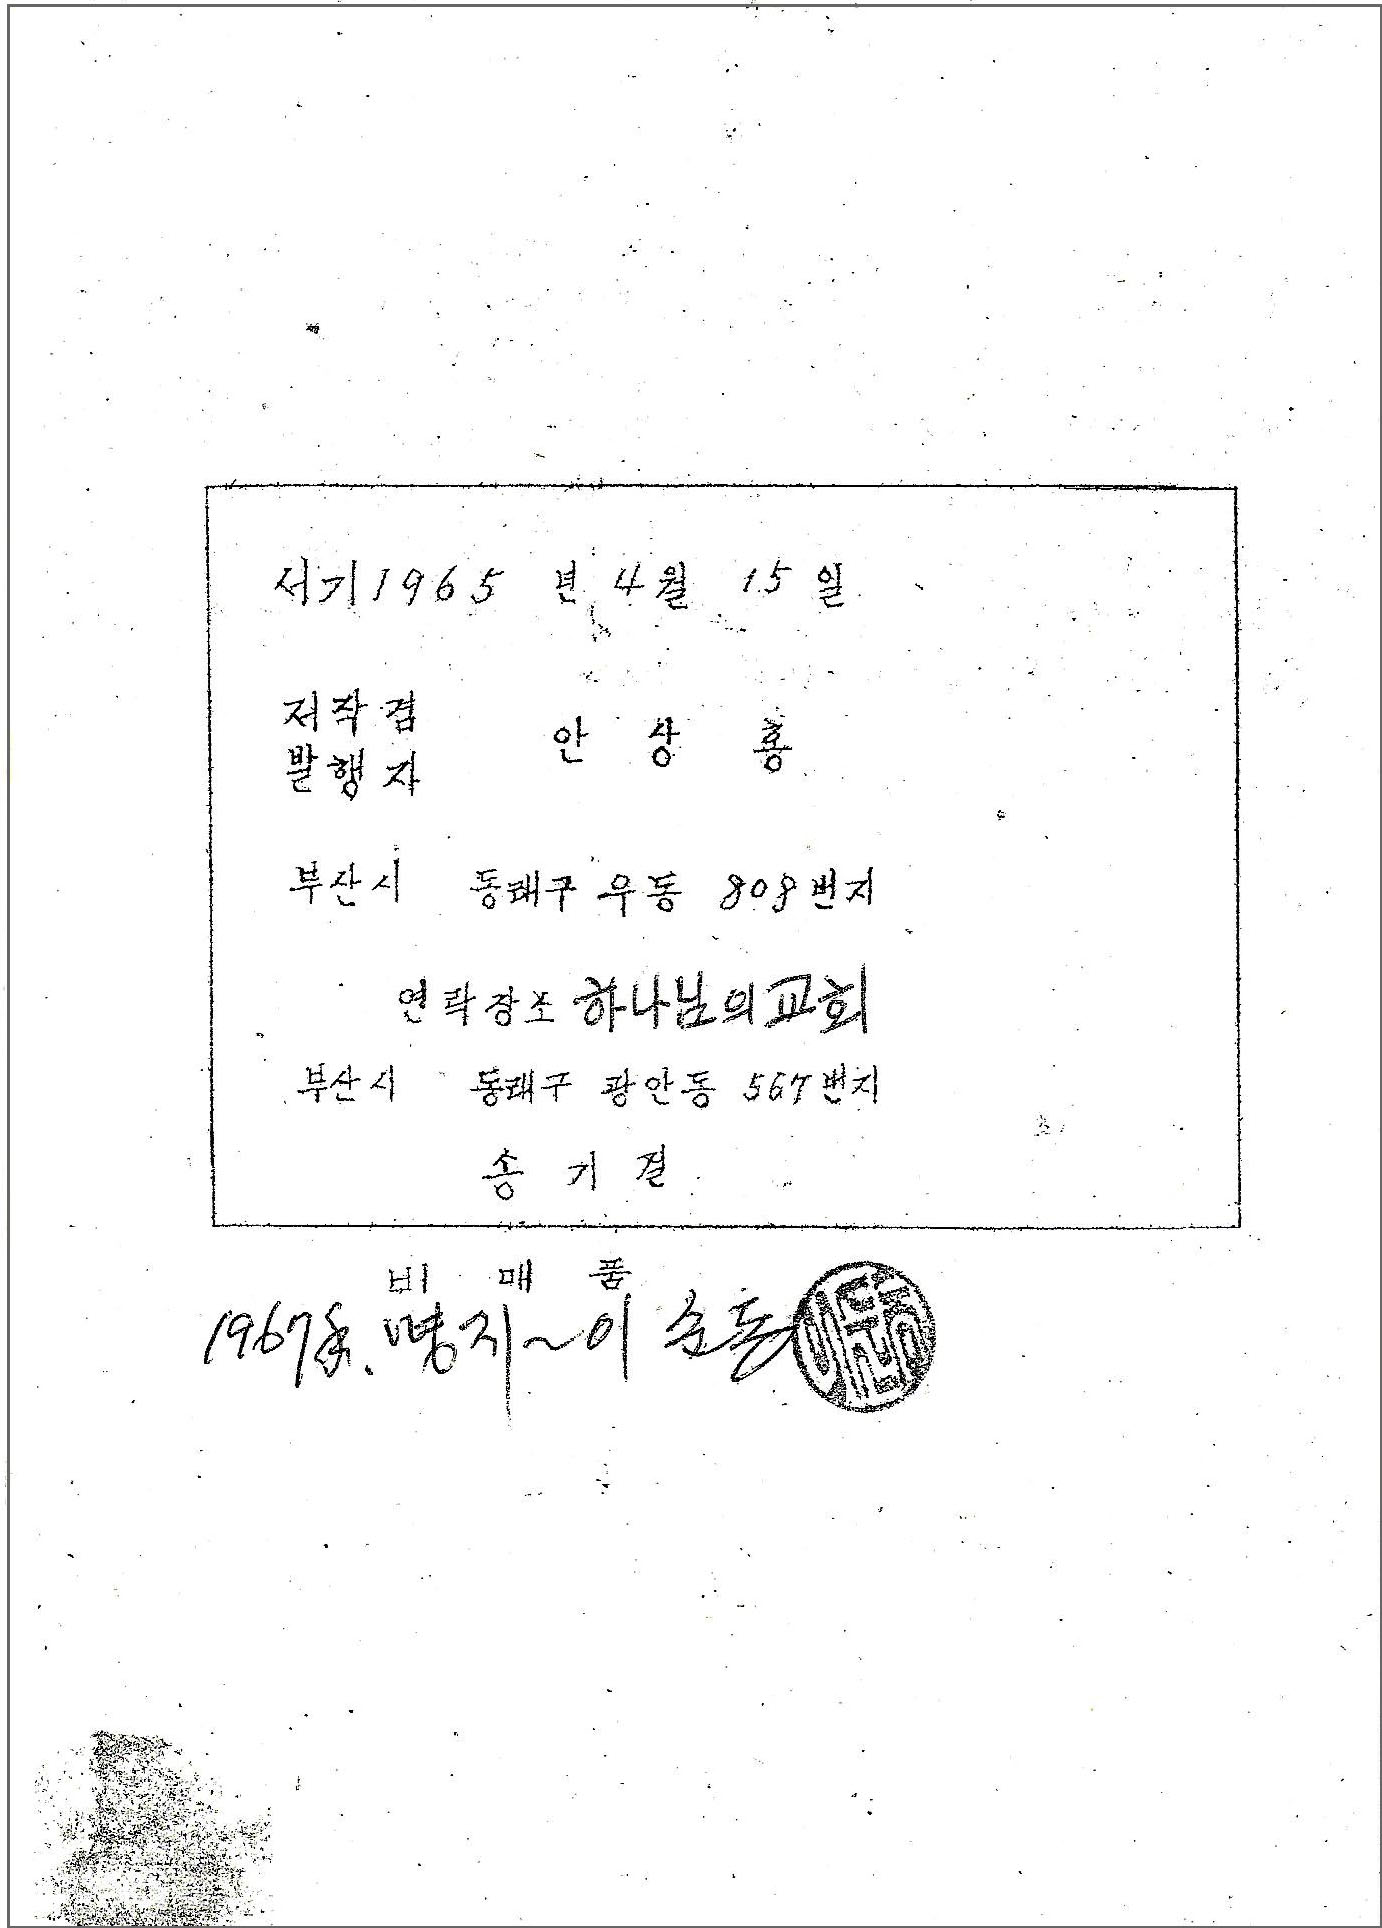 서기1965 년 4월 15일
저작겸
발행자 안 상 홍
부산시 동래구 우동 808번지
연락장소 하나님의교회
부산시 동래구 광안동 567번지
송 기 결
비 매 품
1967 명지~이